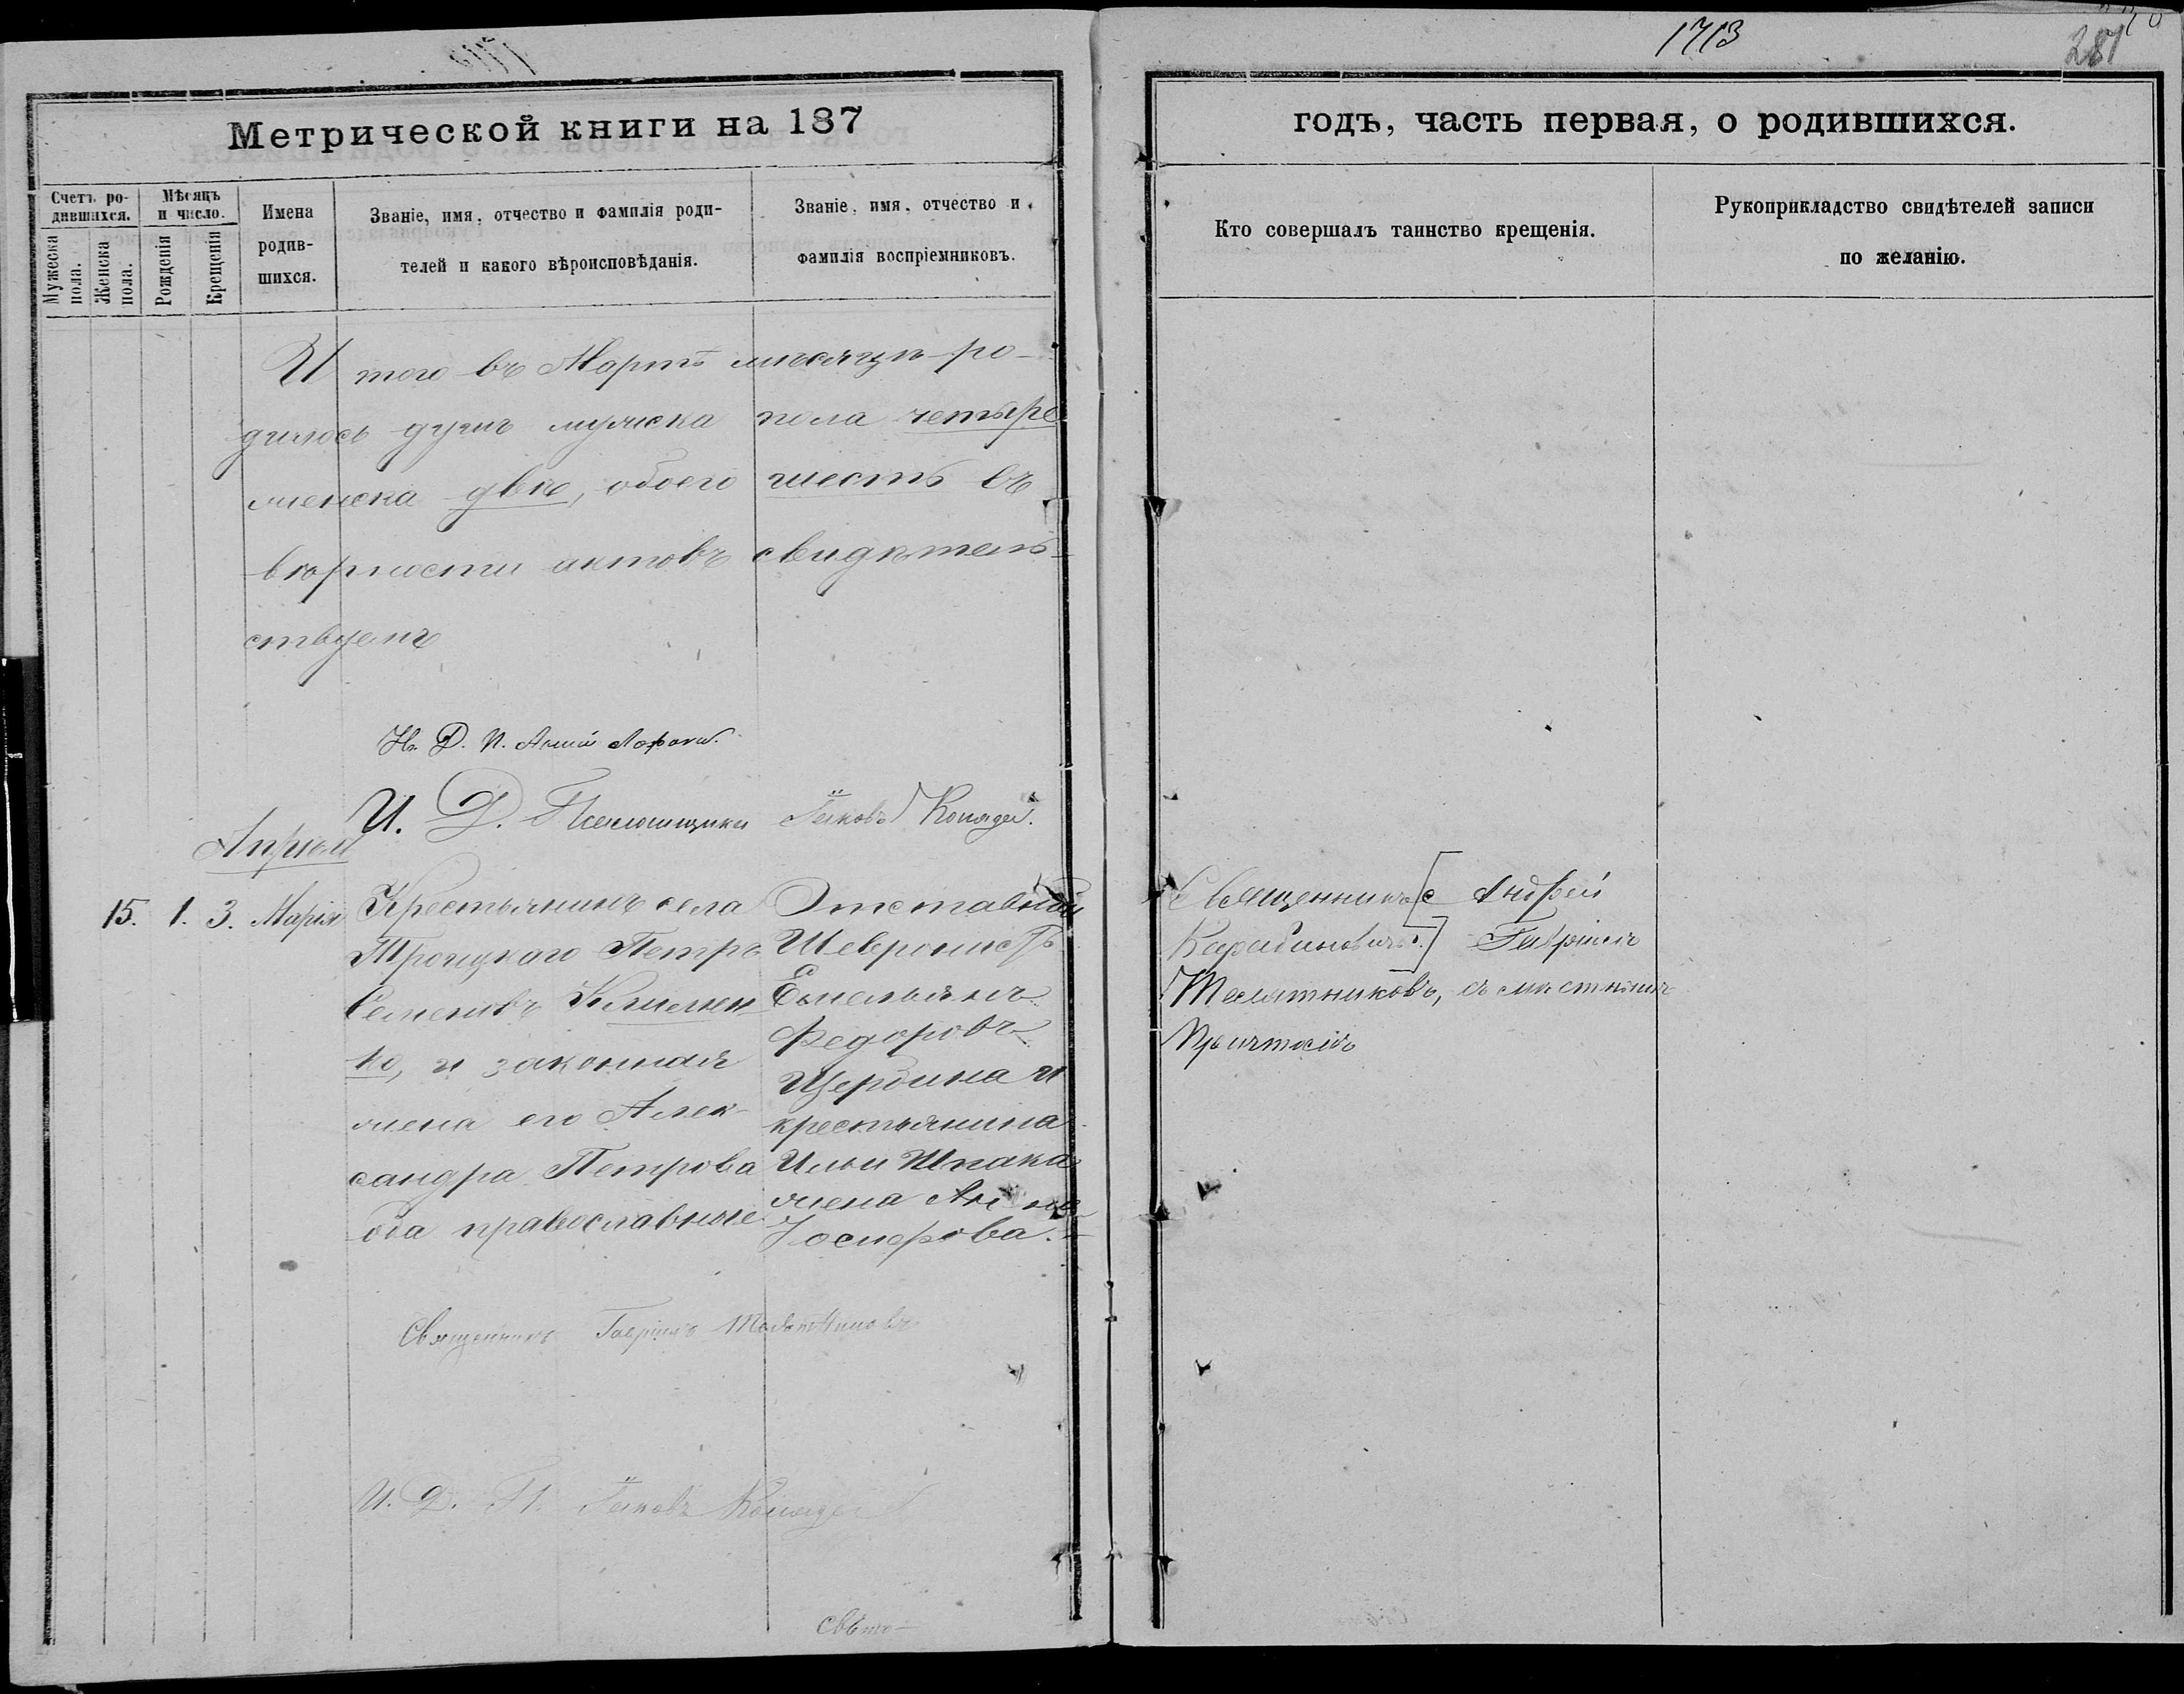 1713
281
Метрической книги на 187
годъ, часть первая, о родившихся.
Счетъ ро-
дившихся.
Мужеска
пола.
Женска
пола.
Мѣсяцъ
и число.
Рожденія
Крещенія
Имена
родив-
шихся.
Званіе, имя, отчество и фамилія роди-
телей и какого вѣроисповѣданія.
Званіе, имя, отчество и
фамилія воспріемниковъ.
Кто совершалъ таинство крещенія.
Рукоприкладство свидѣтелей записи
по желанію.
Итого въ Мартѣ мѣсяцѣ ро-
дилось душъ мужска пола четыре
женска двѣ, обоего шесть въ
вѣрности актовъ свидѣтель-
ствуемъ
И. Д. Псаломщика Іяковъ Коляда.
Апрѣль
15. 1. 3. Марія
Крестьянинъ села
Троицкаго Петръ
Семеновъ Клименко
ко, и законная
жена его Алек-
сандра Петрова
оба православные
Отставной
Шевронистъ
Емельянъ
Федоровъ
Щербина и
крестьянина
Ильи Шпака
жена Анна
Іосифова.
Священникъ [с Андрей
] Гавріилъ
съ мѣстнымъ
причтомъ
Священникъ Гавріилъ
И. Д. П. Іяковъ Коляда